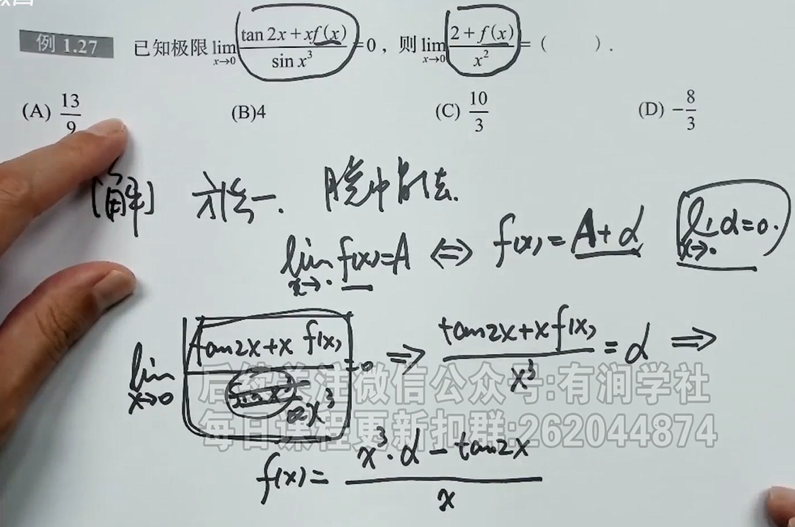 例 1.27 已知极限 lim x→0 (tan 2x + xf(x))/(sin x³) = 0，则 lim x→0 (2 + f(x))/x² = (    ).
(A) 13/9 (B)4 (C) 10/3 (D) -8/3
[解] 方法一. 脱帽法.
lim x→· f(x)=A ⇔ f(x)=A+α lim x→· α=0.
lim x→0 (tan2x+x f(x))/(sin x³ ~x³) =0 ⇒ (tan2x+x f(x))/x³ = α ⇒
后续关注微信公众号:有润学社
每日课程更新扣群:262044874
f(x)= (x³·α - tan2x)/x